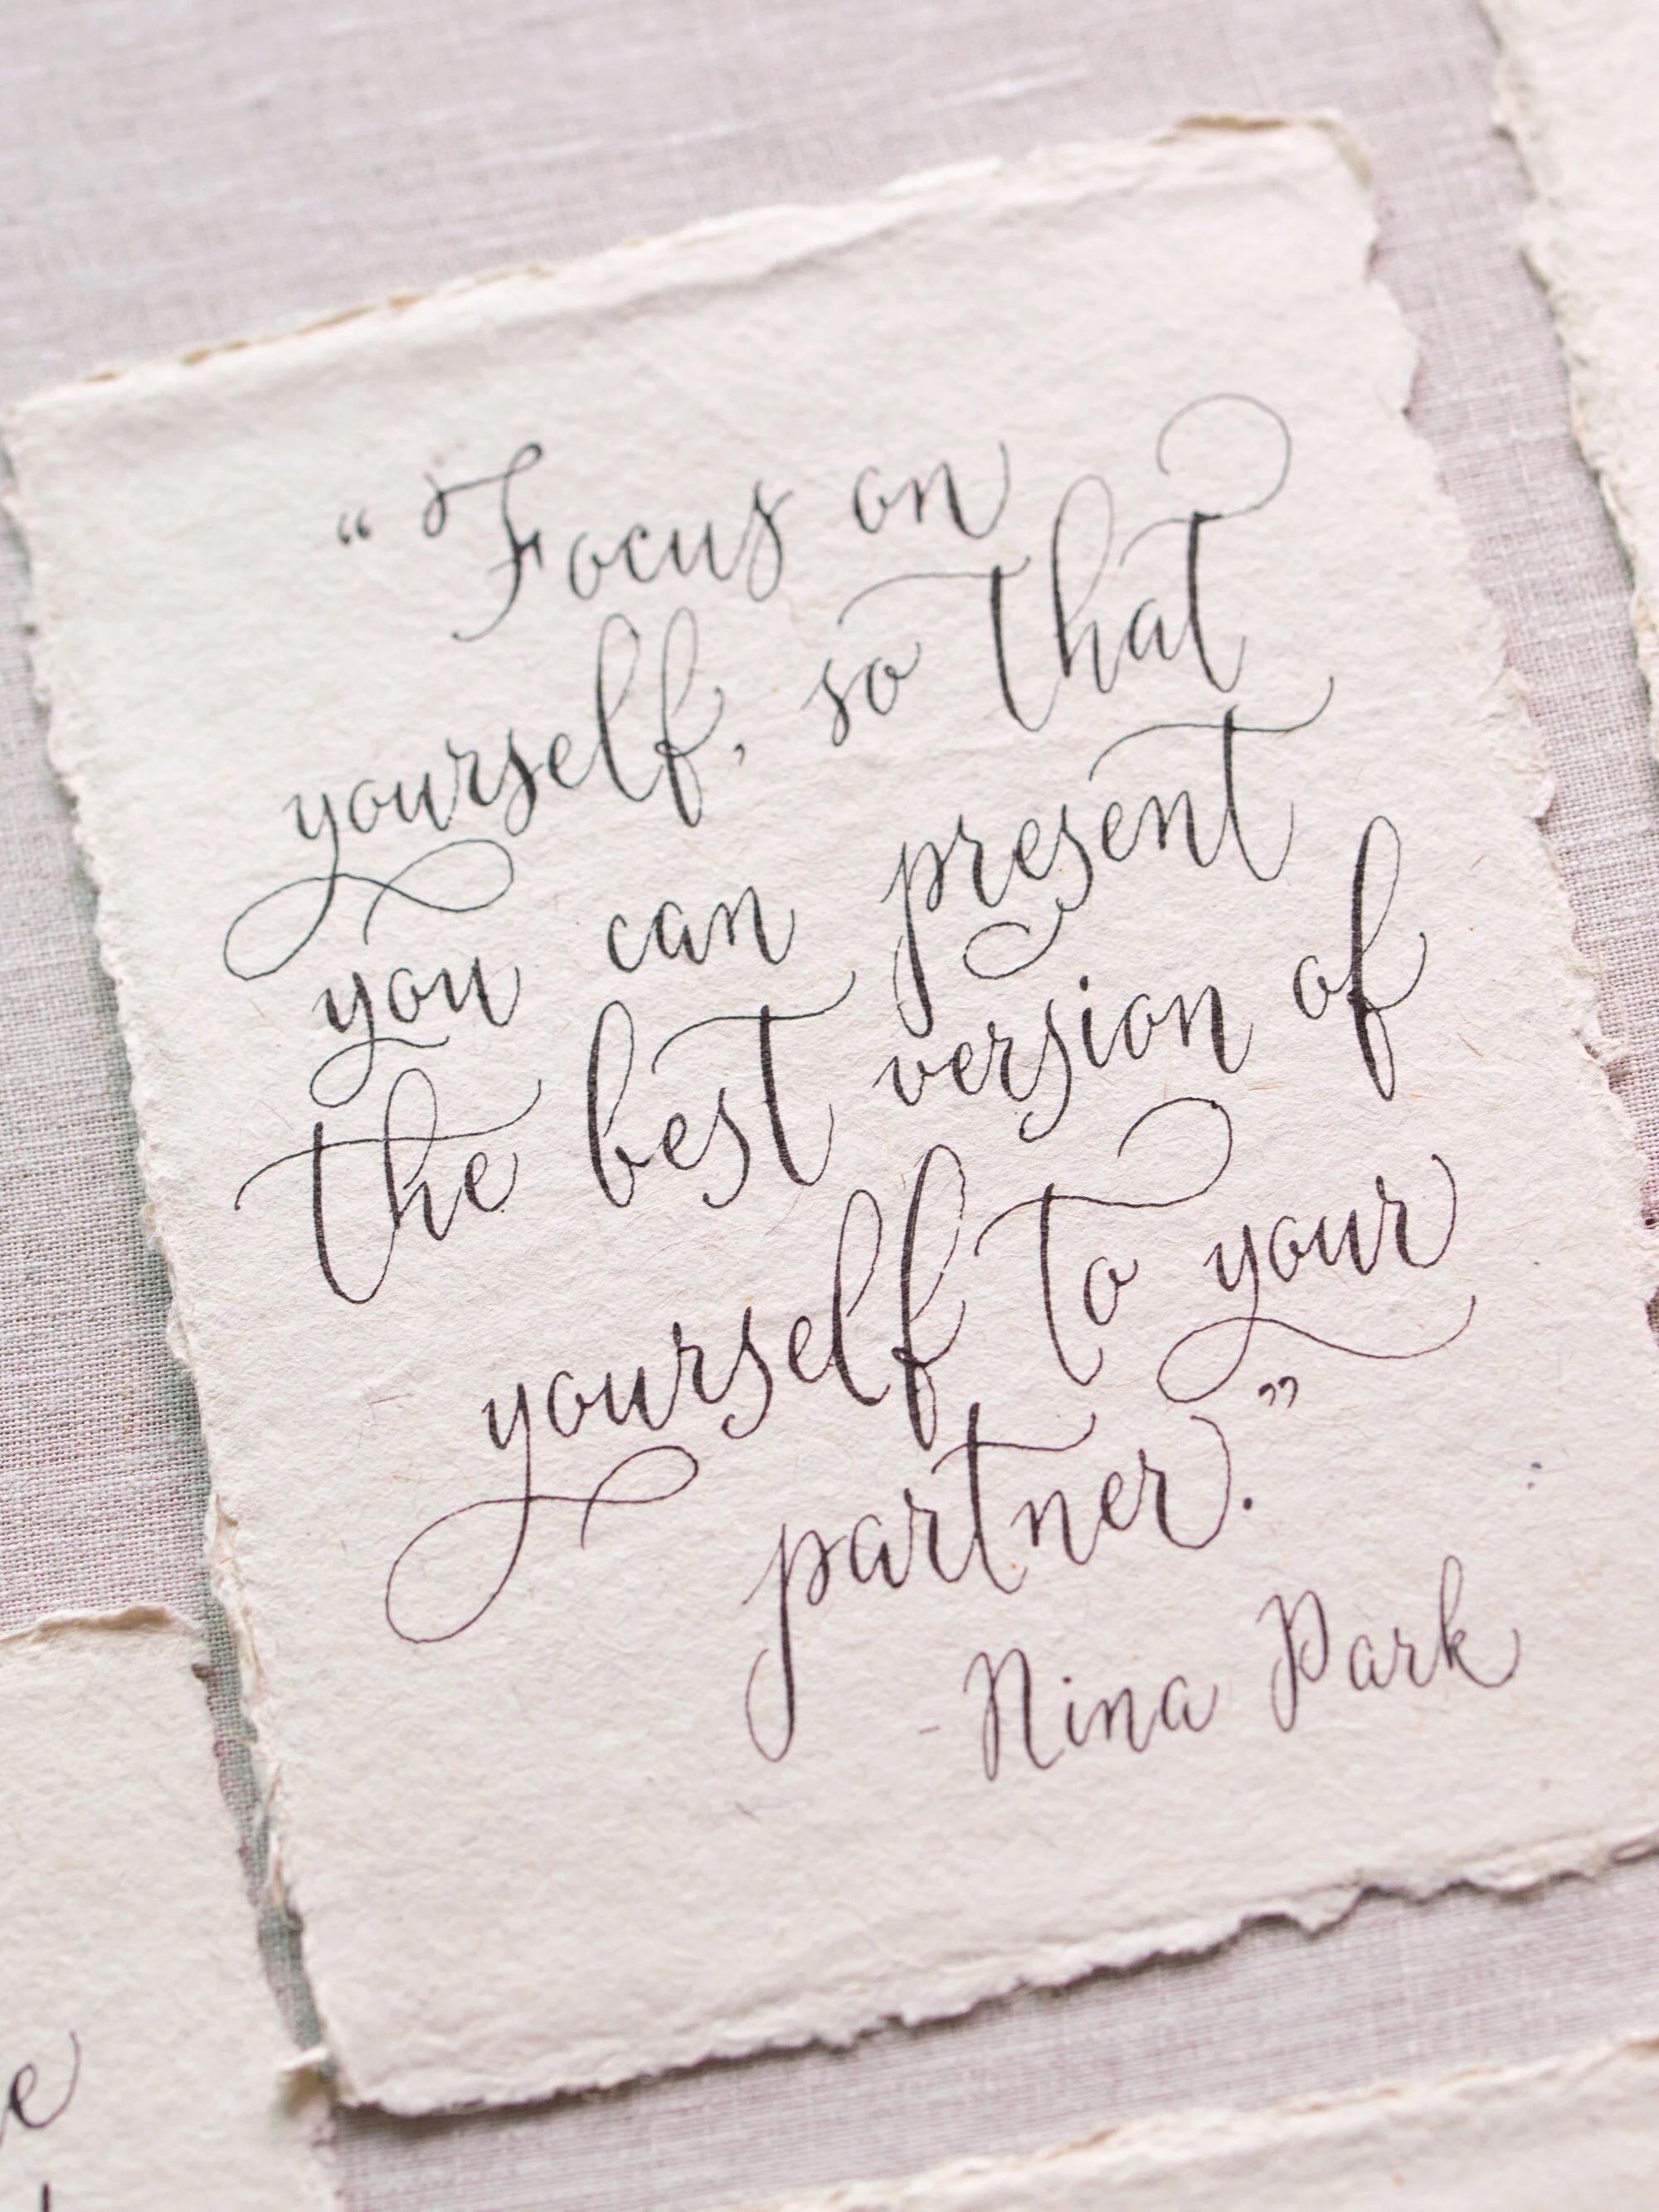 “Focus on
yourself, so that
you can present
the best version of
yourself to your
partner.”
-Nina Park
e